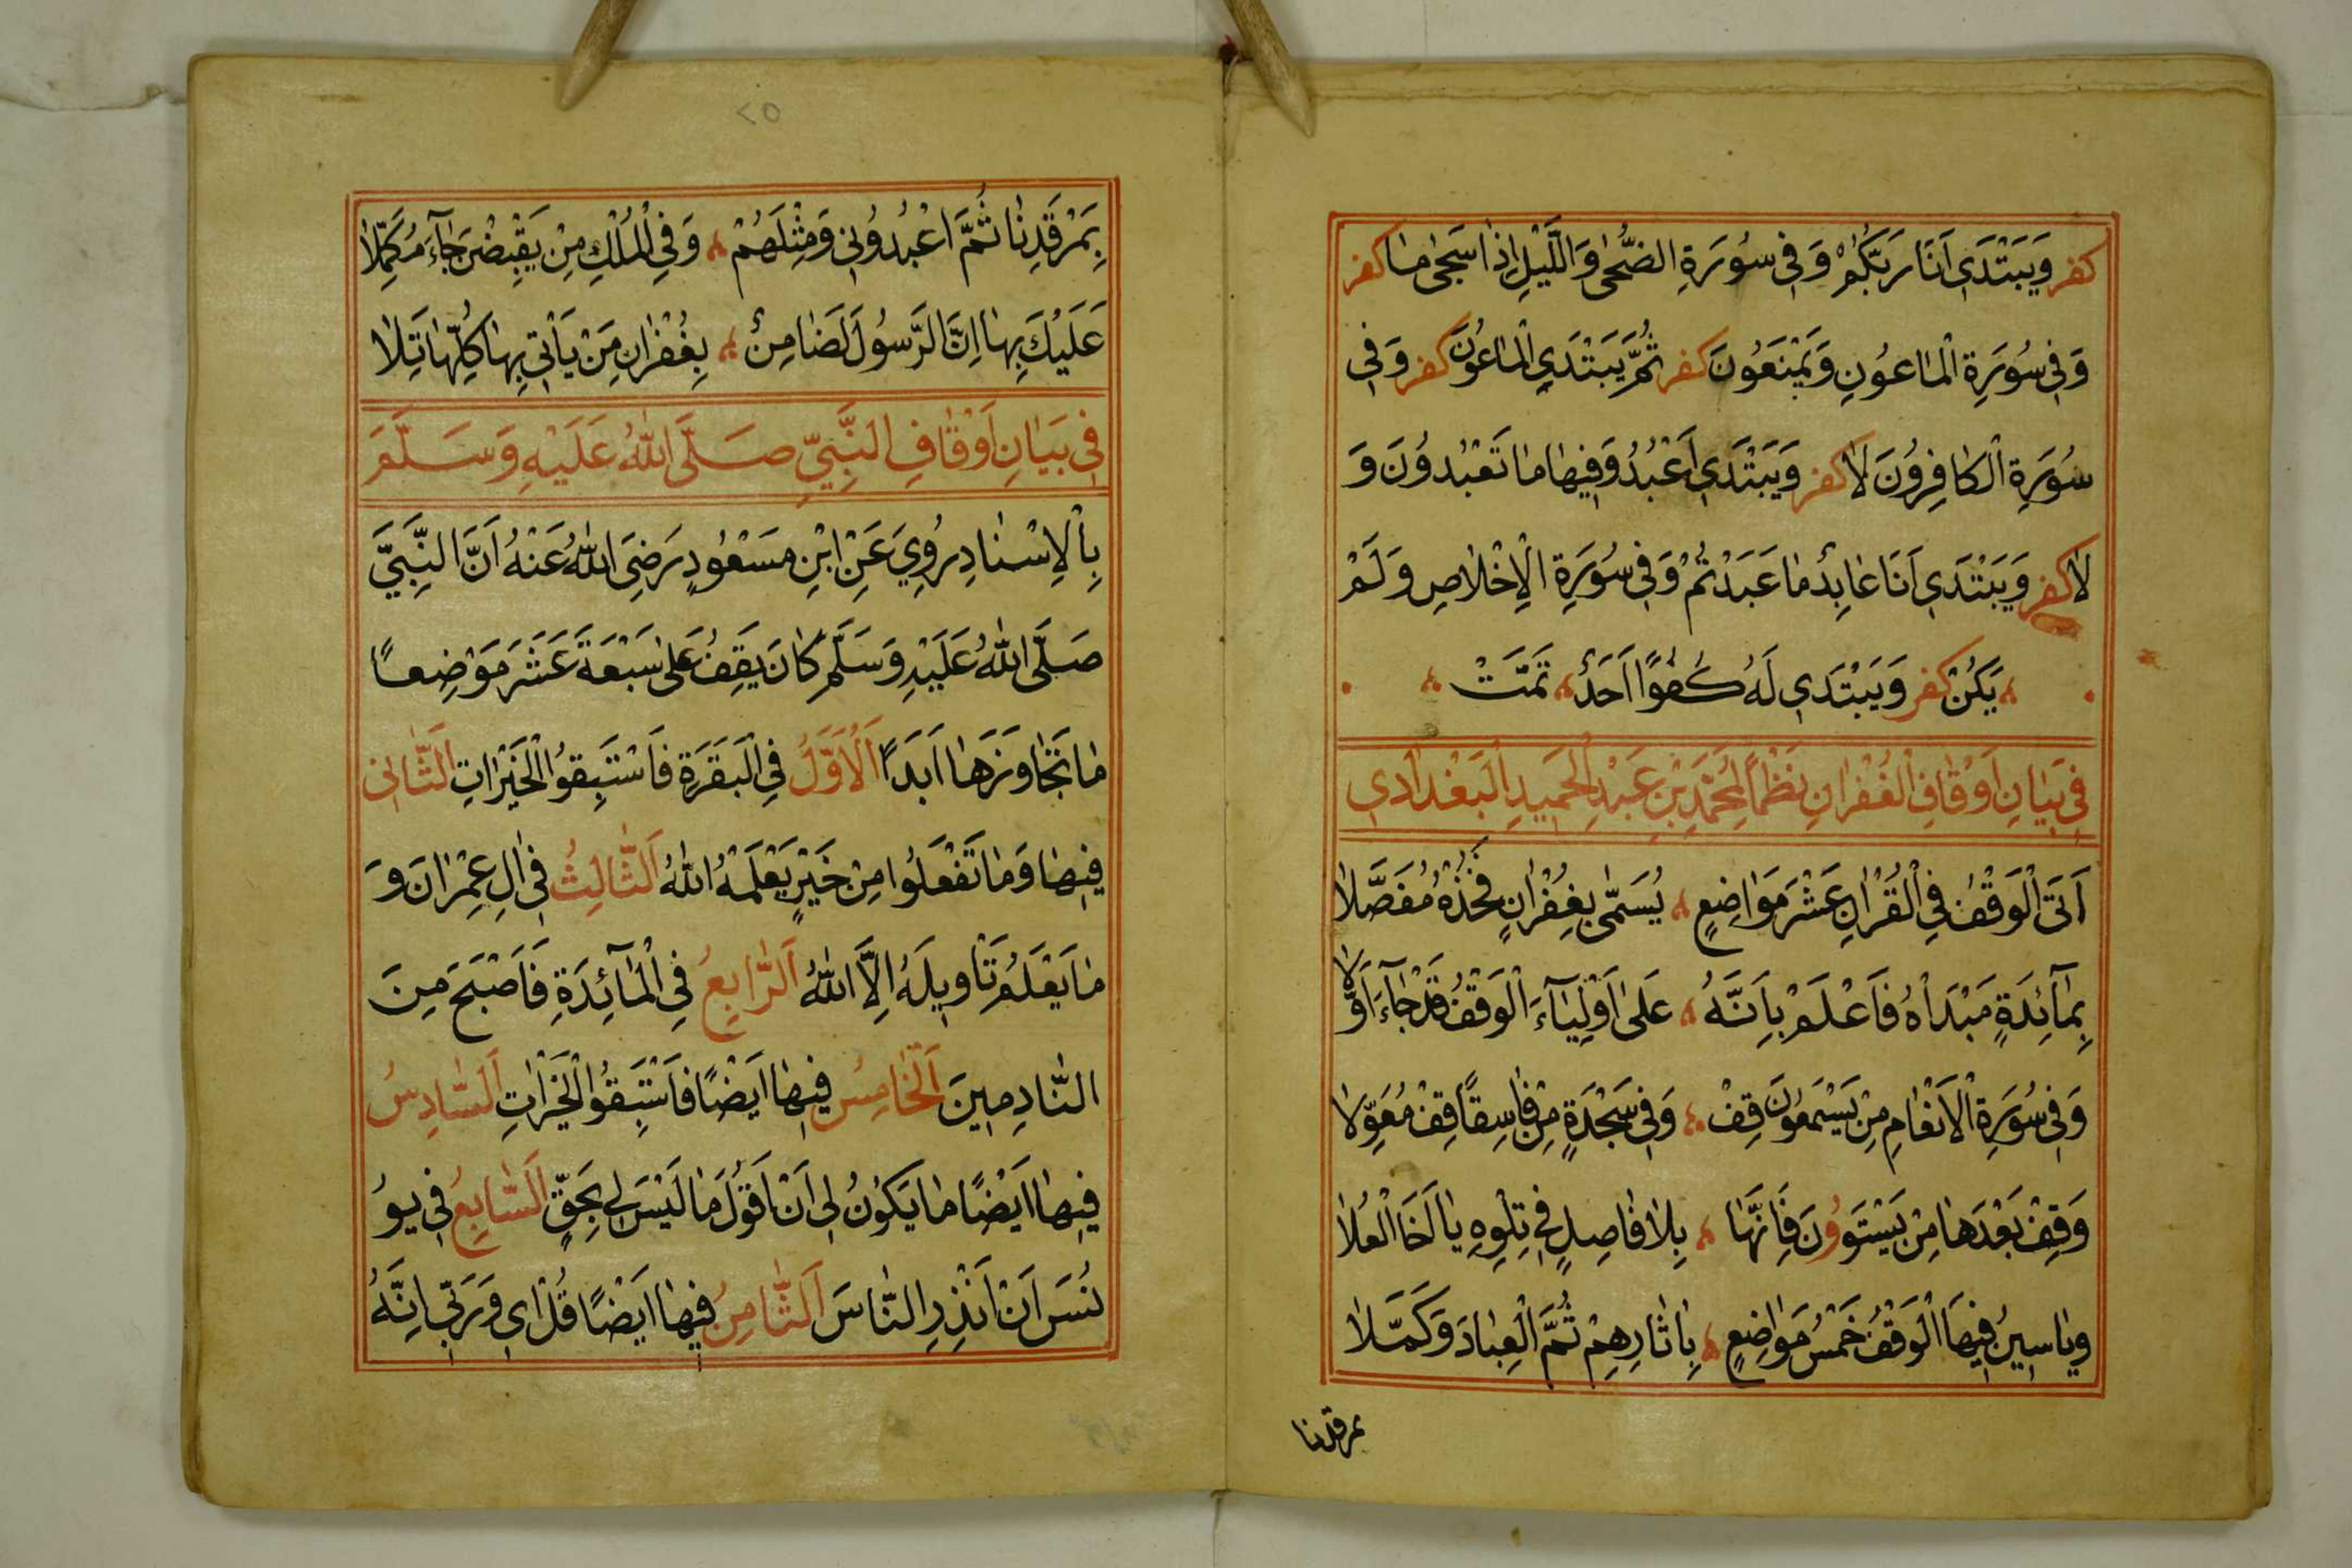 كفر وَيَبْتَدَي اَنَا رَبُّكُمْ وَفِي سُورَةِ الضُّحٰى وَالَّيْلِ اِذَا سَجٰى مٰا كفر
وَفِي سُورَةِ الْمٰاعُونِ وَيَمْنَعُونَ كفر ثُمَّ يَبْتَدَيِ الْمٰاعُونَ كفر وَفِي
سُورَةِ الْكٰافِرُونَ لٰا كفر وَيَبْتَدَي اَعْبُدُ وَفِيهٰا مٰا تَعْبُدُونَ وَ
لٰا كفر وَيَبْتَدَي اَنَا عٰابِدٌ مٰا عَبَدْتُمْ وَفِي سُورَةِ الْاِخْلٰاصِ وَلَمْ
يَكُنْ كفر وَيَبْتَدَي لَهُ كُفُوًا اَحَدٌ تَمَّتْ
فِي بَيٰانِ اَوْقٰافِ الْغُفْرٰانِ نَظْمًا لِمُحَمَّدِ بْنِ عَبْدِ الْحَمِيدِ الْبَغْدٰادِي
اَتَى الْوَقْفُ فِي الْقُرْاٰنِ عَشْرَ مَوٰاضِعٍ يُسَمّٰى بِغُفْرٰانٍ فَخُذْهُ مُفَصَّلٰا
بِمٰآئِدَةٍ مَبْدَاْهُ فَاعْلَمْ بِاَنَّهُ عَلٰى اَوْلِيٰآءَ الْوَقْفُ قَدْ جٰآءَ اَوَّلٰا
وَفِي سُورَةِ الْاَنْعٰامِ مِنْ يَسْمَعُونَ قِفْ وَفِي سَجْدَةٍ مِنْ فٰاسِقًا قِفْ مُعَوِّلٰا
وَقِفْ بَعْدَهٰا مِنْ يَسْتَوُونَ فَاِنَّهٰا بِلٰا فٰاصِلٍ فِي تِلْوِهِ يٰا لَخَا الْعُلٰا
وَيٰاسِينُ فِيهَا الْوَقْفُ خَمْسُ مَوٰاضِعٍ بِاٰثٰارِهِمْ ثُمَّ الْعِبٰادَ وَكَمَّلٰا
بمرقدنا
٢٥
بِمَرْقَدِنٰا ثُمَّ اعْبُدُونِي وَمِثْلَهُمْ وَفِي الْمُلْكِ مِنْ يَقْبِضْنَ جٰآءَ مُكَمِّلٰا
عَلَيْكَ بِهٰا اِنَّ الرَّسُولَ لَضٰامِنٌ بِغُفْرٰانِ مَنْ يَأْتِي بِهٰا كُلِّهٰا تَلٰا
فِي بَيٰانِ اَوْقٰافِ النَّبِيِّ صَلَّى اللّٰهُ عَلَيْهِ وَسَلَّمَ
بِالْاِسْنٰادِ رُوِيَ عَنْ ابْنِ مَسْعُودٍ رَضِيَ اللّٰهُ عَنْهُ اَنَّ النَّبِيَّ
صَلَّى اللّٰهُ عَلَيْهِ وَسَلَّمَ كٰانَ يَقِفُ عَلٰى سَبْعَةَ عَشَرَ مَوْضِعًا
مٰا تَجٰاوَزَهٰا اَبَدًا اَلْاَوَّلُ فِي الْبَقَرَةِ فَاسْتَبِقُوا الْخَيْرٰاتِ اَلثّٰانِي
فِيهٰا وَمٰا تَفْعَلُوا مِنْ خَيْرٍ يَعْلَمْهُ اللّٰهُ اَلثّٰالِثُ فِي اٰلِ عِمْرٰانَ وَ
مٰا يَعْلَمُ تَاْوِيلَهُ اِلَّا اللّٰهُ اَلرّٰابِعُ فِي الْمٰآئِدَةِ فَاَصْبَحَ مِنَ
النّٰادِمِينَ اَلْخٰامِسُ فِيهٰا اَيْضًا فَاسْتَبِقُوا الْخَيْرٰاتِ اَلسّٰادِسُ
فِيهٰا اَيْضًا مٰا يَكُونُ لِي اَنْ اَقُولَ مٰا لَيْسَ لِي بِحَقٍّ اَلسّٰابِعُ فِي يُو
نُسَ اَنْ اَنْذِرِ النّٰاسَ اَلثّٰامِنُ فِيهٰا اَيْضًا قُلْ اِي وَرَبِّي اِنَّهُ